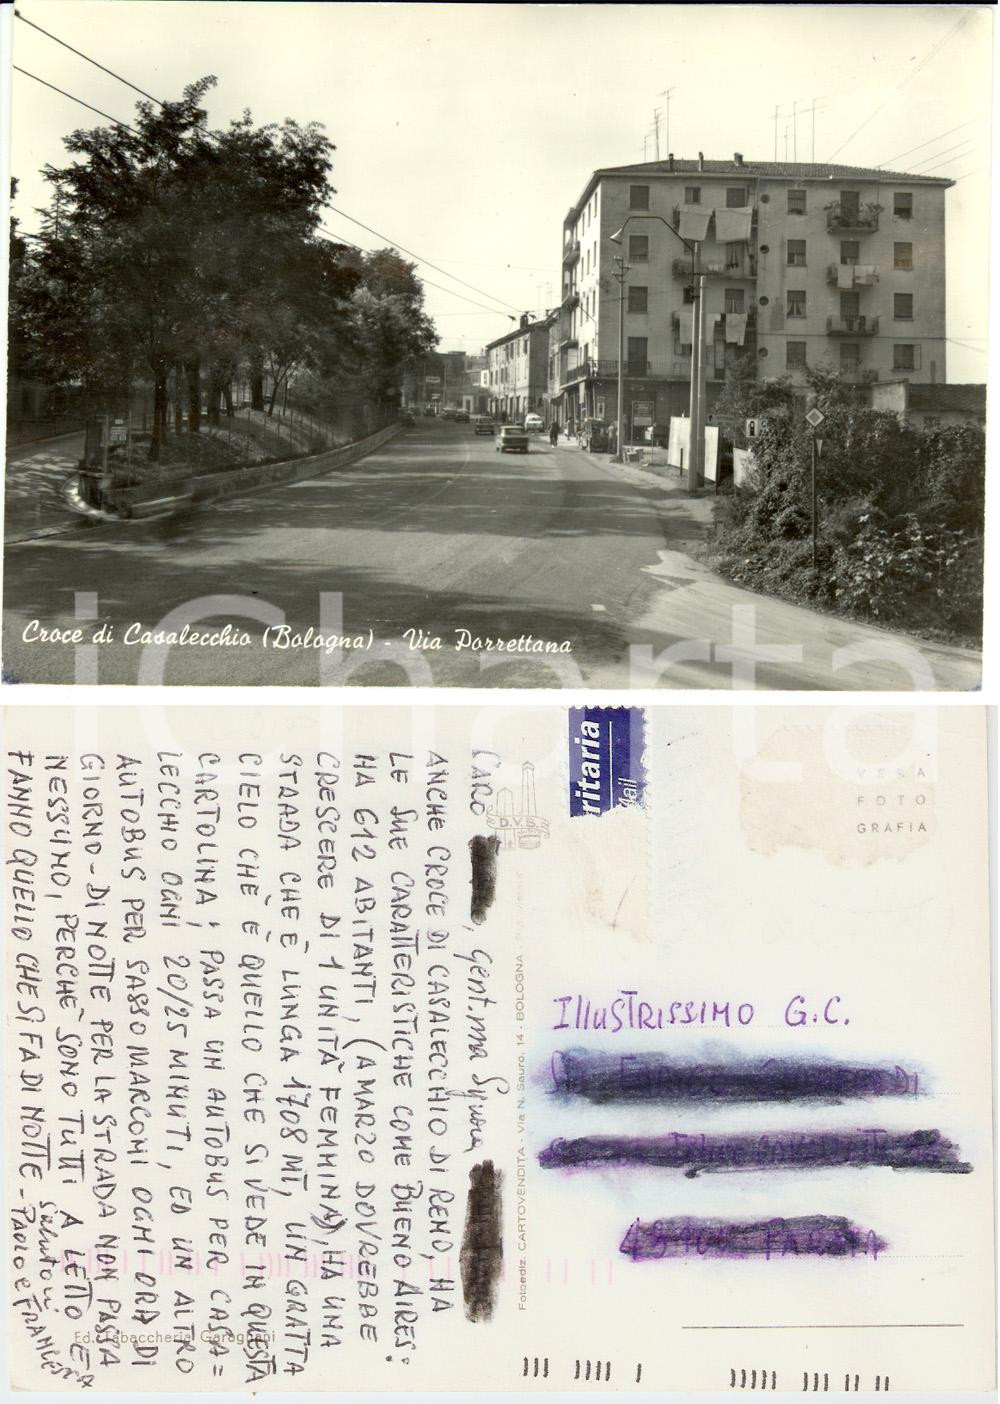 Croce di Casalecchio (Bologna) - Via Porrettana
iCharta
CARO
, Gent.ma Signora
ANCHE CROCE DI CASALECCHIO DI RENO, HA
LE SUE CARATTERISTICHE COME BUENO AIRES:
HA 612 ABITANTI, (A MARZO DOVREBBE
CRESCERE DI 1 UNITÀ FEMMINA), HA UNA
STRADA CHE È LUNGA 1708 MT, UN GRATTA
CIELO CHE È QUELLO CHE SI VEDE IN QUESTA
CARTOLINA; PASSA UN AUTOBUS PER CASA=
LECCHIO OGNI 20/25 MINUTI, ED UN ALTRO
AUTOBUS PER SASSO MARCONI OGNI ORA DI
GIORNO - DI NOTTE PER LA STRADA NON PASSA
NESSUNO, PERCHÈ SONO TUTTI A LETTO E
FANNO QUELLO CHE SI FA DI NOTTE -
Saluti
PAOLO E FRANCESCA
Ed. Tabaccheria Garagnani
D.V.B.
Fotoediz. CARTOVENDITA - Via N. Sauro, 14 - BOLOGNA
ritaria
Mail
VERA
FOTO
GRAFIA
ILLUSTRISSIMO G.C.